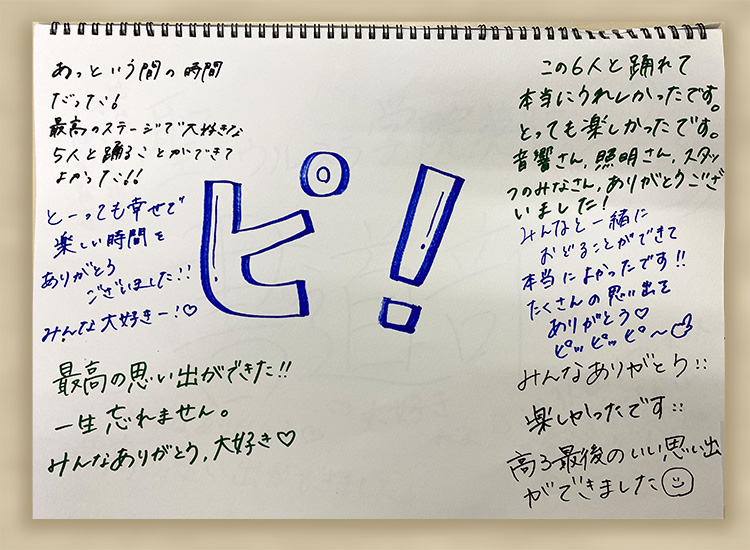 あっという間の時間
だった!
最高のステージで大好きな
5人と踊ることができて
よかった!!
とーっても幸せで
楽しい時間を
ありがとう
ございました!!
みんな大好きー!♡
最高の思い出ができた!!
一生忘れません。
みんなありがとう,大好き♡
ピ!
この6人と踊れて
本当にうれしかったです。
とっても楽しかったです。
音響さん,照明さん,スタッ
フのみなさん,ありがとうござ
いました!
みんなと一緒に
おどることができて
本当によかったです!!
たくさんの思い出を
ありがとう♡
ピッピッピ〜
みんなありがとう::
楽しかったです::
高3最後のいい思い出
ができました☺